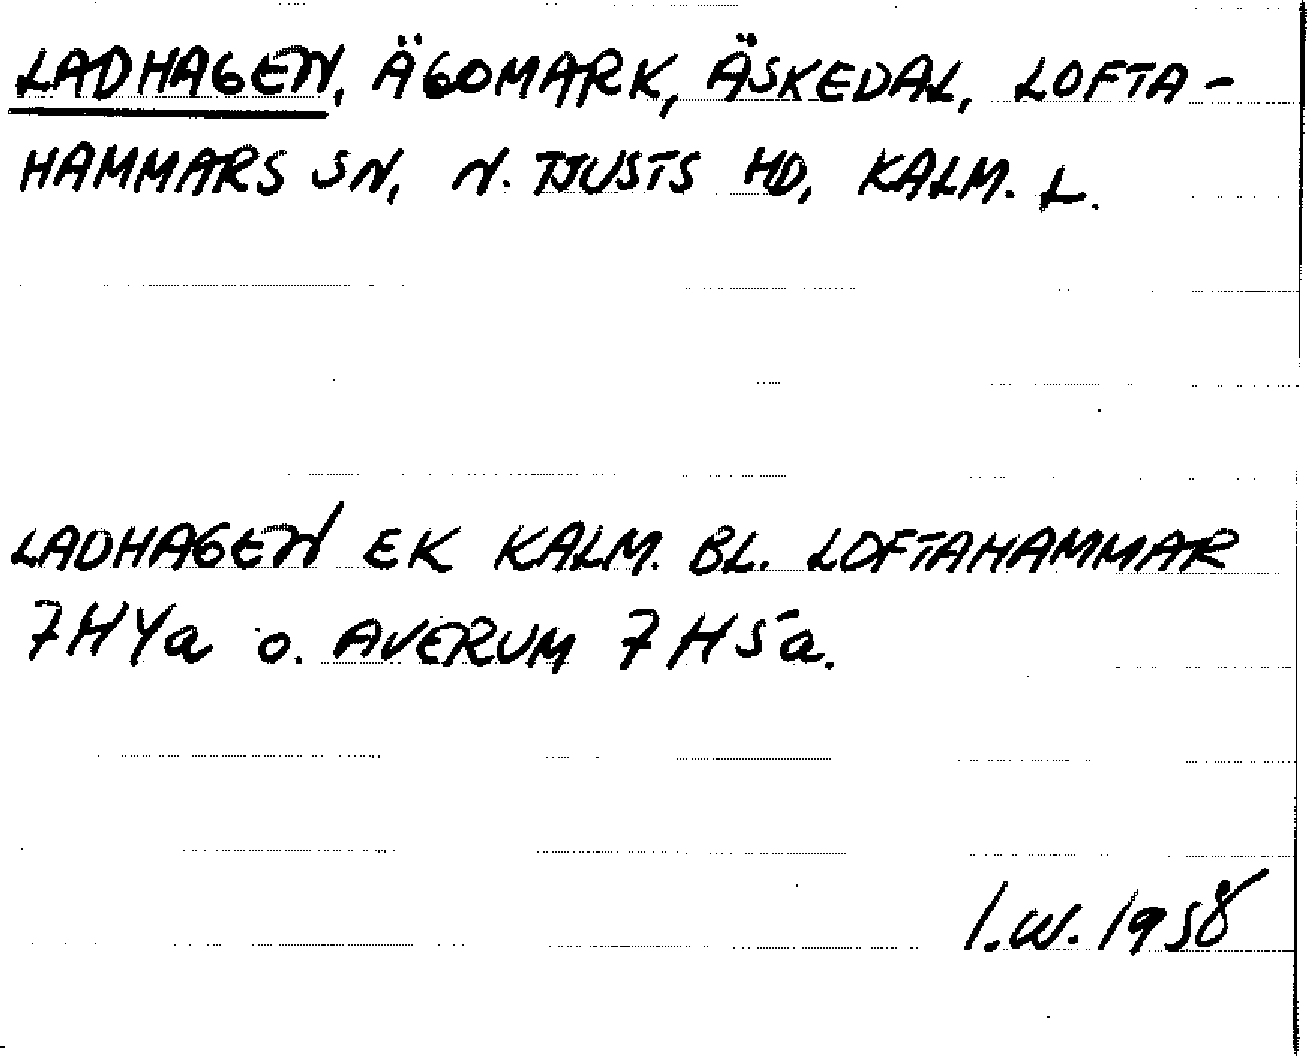 LADHAGEN, ÄGOMARK, ÄSKEDAL, LOFTA-
HAMMARS SN, N. TJUSTS HD, KALM. L.
LADHAGEN EK KALM. BL. LOFTAHAMMAR
7HYa o. AVERUM 7H5a.
I.W. 1958